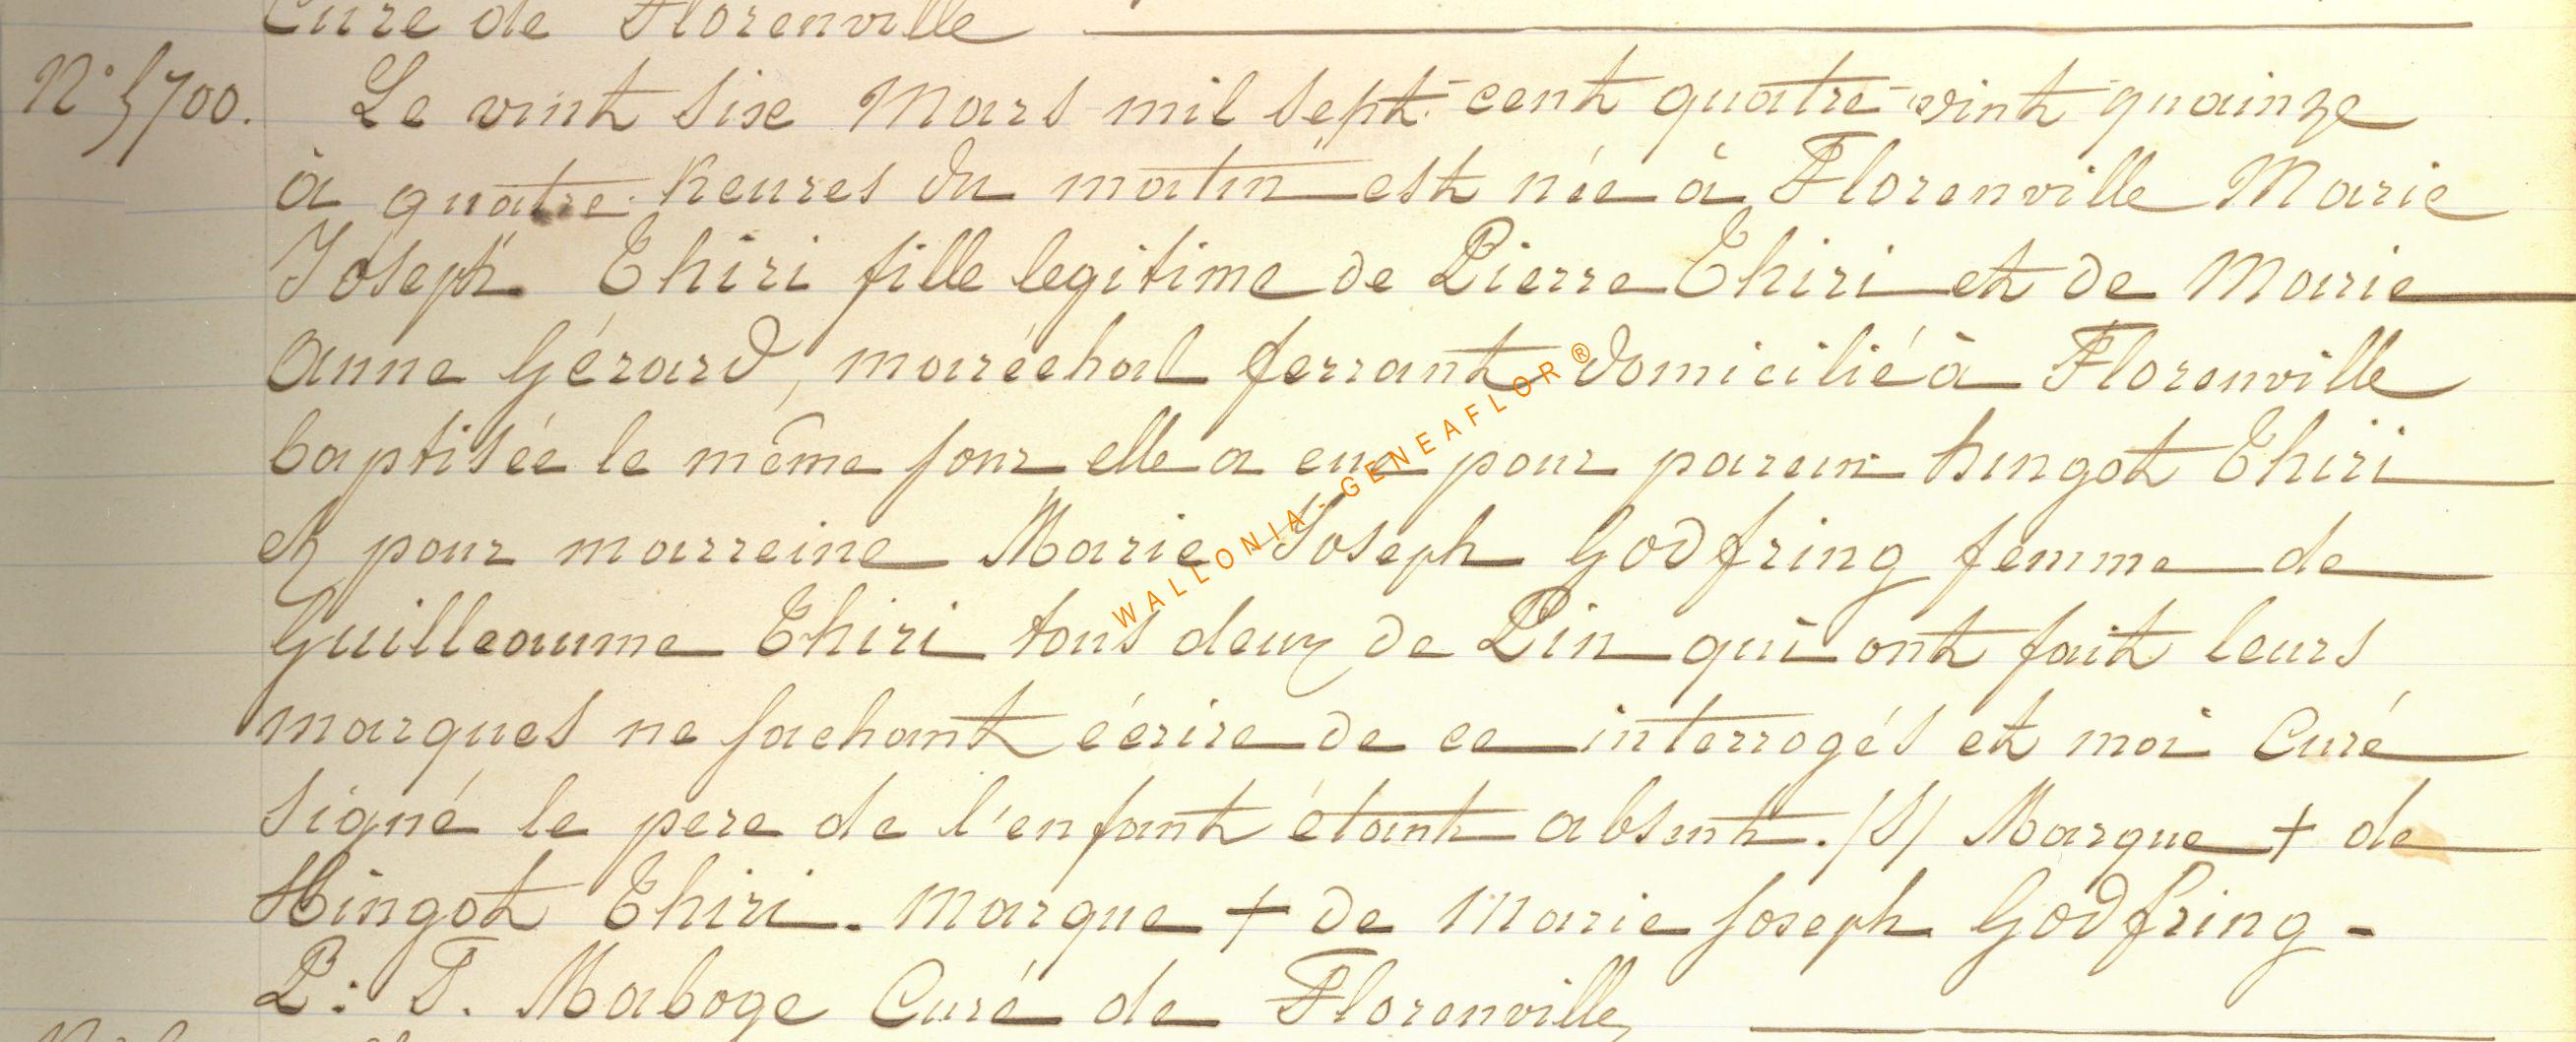 Curé de Florenville
N° 5700. Le vint six Mars mil sept-cent quatre-vint quainze
à quatre heures du matin est née à Florenville Marie
Joseph Thiri fille legitime de Pierre Thiri et de Marie
Anne Gérard, maréchal ferrant domicilié à Florenville
baptisée le même jour elle a eue pour parein hingot Thiri
et pour marreine Marie Joseph Godfring femme de
Guilleaume Thiri tous deux de Pin qui ont fait leurs
marques ne sachant écrire de ce interrogés et moi Curé
signé le pere de l'enfant étant absent. (S) Marque + de
Hingot Thiri. Marque + de Marie Joseph Godfring -
P: T. Maboge Curé de Florenville
WALLONIA-GENEAFLOR®